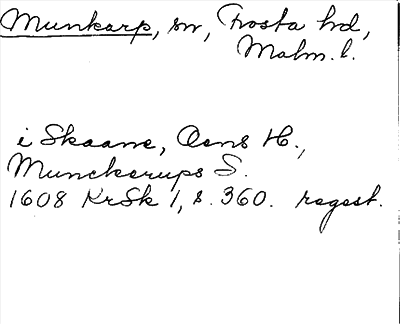 Munkarp, sn, Frosta hd,
Malm. l.
i Skaane, Oens H.,
Munckerups S.
1608 KrSk 1, s. 360. regest.